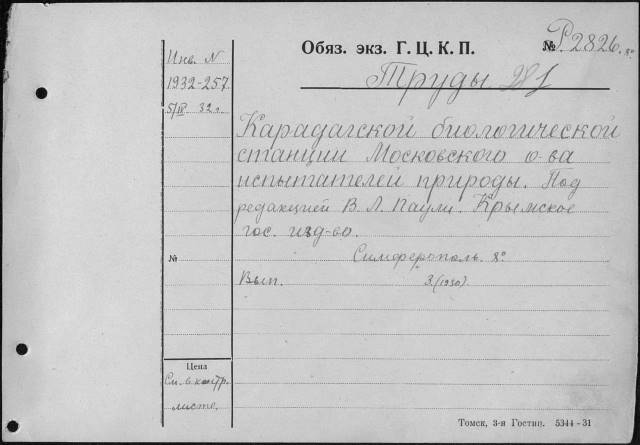 Инв. N
1932-257
5/IV 32 г.
Обяз. экз. Г. Ц. К. П.
№ Р2826. 8°
Труды
Карадагской биологической
станции Московского о-ва
испытателей природы. Под
редакцией В. Л. Паули. Крымское
гос. изд-во.
№
Симферополь. 8°
Вып. 3. (1930).
Цена
См. в контр.
листе.
Томск, 3-я Гостип. 5344-31